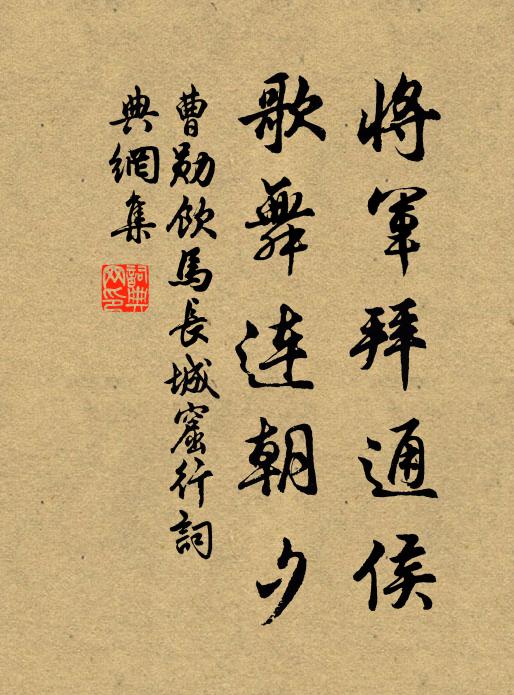 將軍拜通侯
歌舞連朝夕
曹勛飲馬長城窟行詞
典網集
詞典
网印